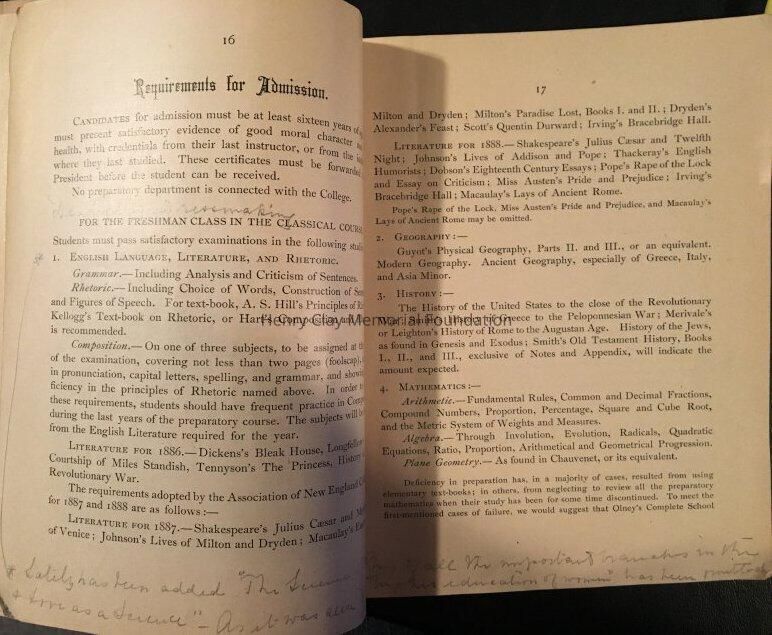 16
Requirements for Admission.
CANDIDATES for admission must be at least sixteen years of
must present satisfactory evidence of good moral character
health, with credentials from their last instructor, or from the
where they last studied. These certificates must be forwarded
President before the student can be received.
No preparatory department is connected with the College.
Dressmaking
FOR THE FRESHMAN CLASS IN THE CLASSICAL COURSE
Students must pass satisfactory examinations in the following
1. ENGLISH LANGUAGE, LITERATURE, AND RHETORIC.
Grammar.—Including Analysis and Criticism of Sentences.
Rhetoric.—Including Choice of Words, Construction of
and Figures of Speech. For text-book, A. S. Hill's Principles of
Kellogg's Text-book on Rhetoric, or Hart's Composition
is recommended.
Composition.—On one of three subjects, to be assigned at
of the examination, covering not less than two pages (foolscap),
in pronunciation, capital letters, spelling, and grammar, and
ficiency in the principles of Rhetoric named above. In order
these requirements, students should have frequent practice in
during the last years of the preparatory course. The subjects will
from the English Literature required for the year.
LITERATURE FOR 1886.—Dickens's Bleak House,
Courtship of Miles Standish, Tennyson's The Princess, History
Revolutionary War.
The requirements adopted by the Association of New England
for 1887 and 1888 are as follows:—
LITERATURE FOR 1887.—Shakespeare's Julius Cæsar and
of Venice; Johnson's Lives of Milton and Dryden; Macaulay's
* Lately has been added "The Science
& Love as a Science" — As it was
17
Milton and Dryden; Milton's Paradise Lost, Books I. and II.; Dryden's
Alexander's Feast; Scott's Quentin Durward; Irving's Bracebridge Hall.
LITERATURE FOR 1888.—Shakespeare's Julius Cæsar and Twelfth
Night; Johnson's Lives of Addison and Pope; Thackeray's English
Humorists; Dobson's Eighteenth Century Essays; Pope's Rape of the Lock
and Essay on Criticism; Miss Austen's Pride and Prejudice; Irving's
Bracebridge Hall; Macaulay's Lays of Ancient Rome.
Pope's Rape of the Lock, Miss Austen's Pride and Prejudice, and Macaulay's
Lays of Ancient Rome may be omitted.
2. GEOGRAPHY:—
Guyot's Physical Geography, Parts II. and III., or an equivalent.
Modern Geography. Ancient Geography, especially of Greece, Italy,
and Asia Minor.
3. HISTORY:—
The History of the United States to the close of the Revolutionary
War; History of Greece to the Peloponnesian War; Merivale's
or Leighton's History of Rome to the Augustan Age. History of the Jews,
as found in Genesis and Exodus; Smith's Old Testament History, Books
I., II., and III., exclusive of Notes and Appendix, will indicate the
amount expected.
4. MATHEMATICS:—
Arithmetic.—Fundamental Rules, Common and Decimal Fractions,
Compound Numbers, Proportion, Percentage, Square and Cube Root,
and the Metric System of Weights and Measures.
Algebra.—Through Involution, Evolution, Radicals, Quadratic
Equations, Ratio, Proportion, Arithmetical and Geometrical Progression.
Plane Geometry.—As found in Chauvenet, or its equivalent.
Deficiency in preparation has, in a majority of cases, resulted from using
elementary text-books; in others, from neglecting to review all the preparatory
mathematics when their study has been for some time discontinued. To meet the
first-mentioned cases of failure, we would suggest that Olney's Complete School
of all the important branches in the
education of women" has been omitted
Henry Clay Memorial Foundation